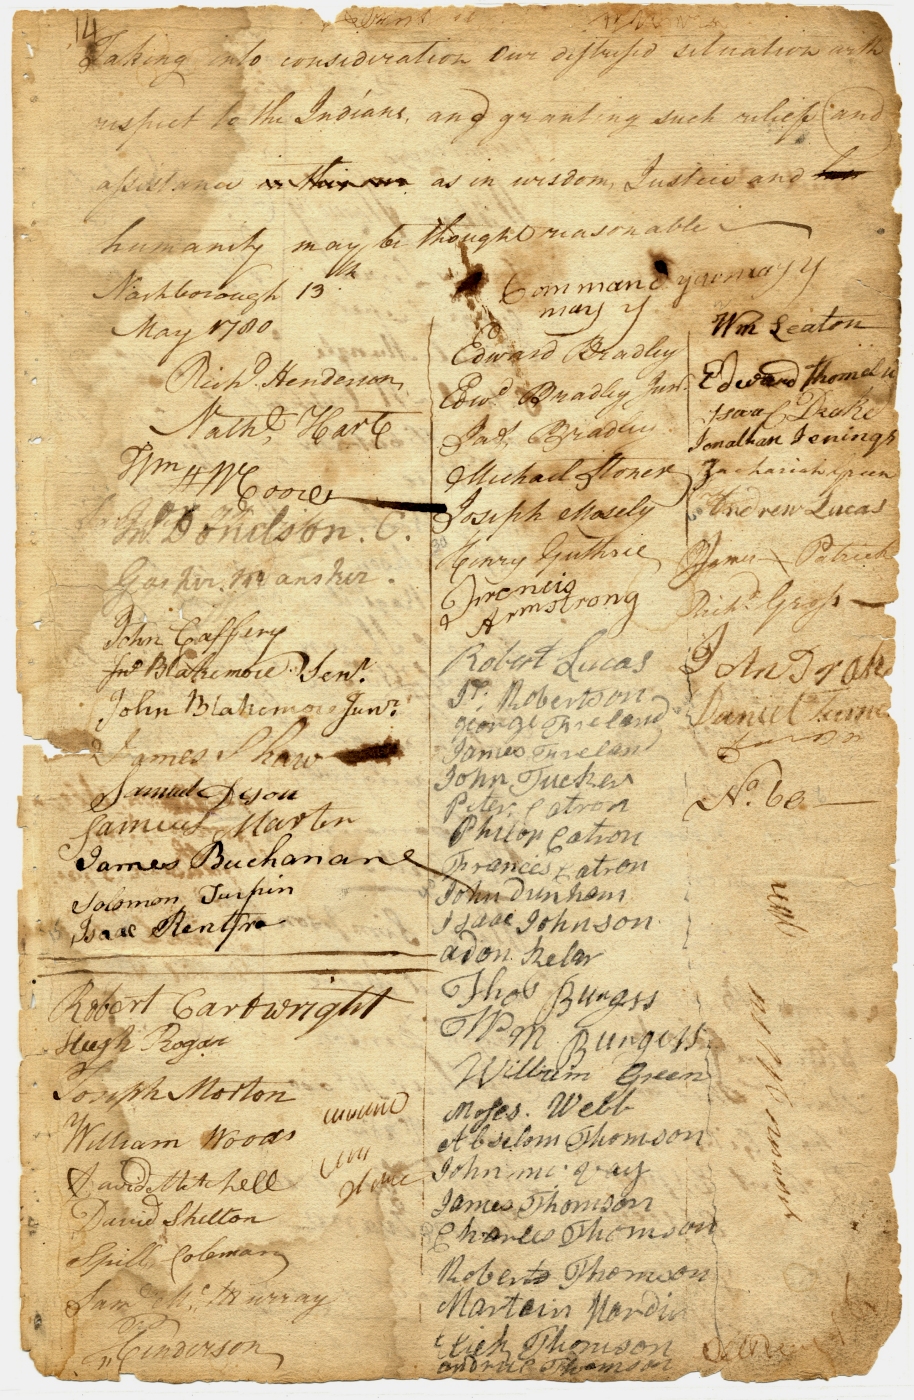 14
Taking into consideration our distressed situation with
respect to the Indians, and granting such relief and
assistance as in wisdom, Justice and
humanity may be thought reasonable
Nashborough 13th
May 1780
Richd. Henderson
Nathl. Hart
Wm H Moore
Jno. Donelson. C.
Gasper Mansker.
John Caffery
Jno Blakemore Senr.
John Blakemore Junr.
James Shaw
Samuel Deson
Samuel Marten
James Buchanan
Solomon Turpin
Isaac Rentfro
Robert Cartwright
Hugh Rogan
Joseph Morton
William Woods
David Mitchell
David Shelton
Spill Coleman
Saml Mc. Murray
Henderson
Command
may y
Edward Bradley
Edwd Bradley Junr.
Jas. Bradley
Michael Stoner
Joseph Mosely
Henry Guthrie
Francis
Armstrong
Robert Lucas
Js. Robertson
George Freeland
James Freeland
John Tucker
Peter Catron
Philop Catron
Francis Catron
John Dunham
Isaac Johnson
adon Kelar
Thos Burgess
Wm Burgess
William Green
Moses. Webb
Absolom Thomson
John mc. vay
James Thomson
Charles Thomson
Robert Thomson
Martain Hardin
Elich Thomson
andrue Thomson
Wm Leaton
Edward Thomelu
Isaac Drake
Jonathan Jenings
Zachariah Green
Andrew Lucas
James X Patrick
Richd. Gross
Daniel Turner
No. 60